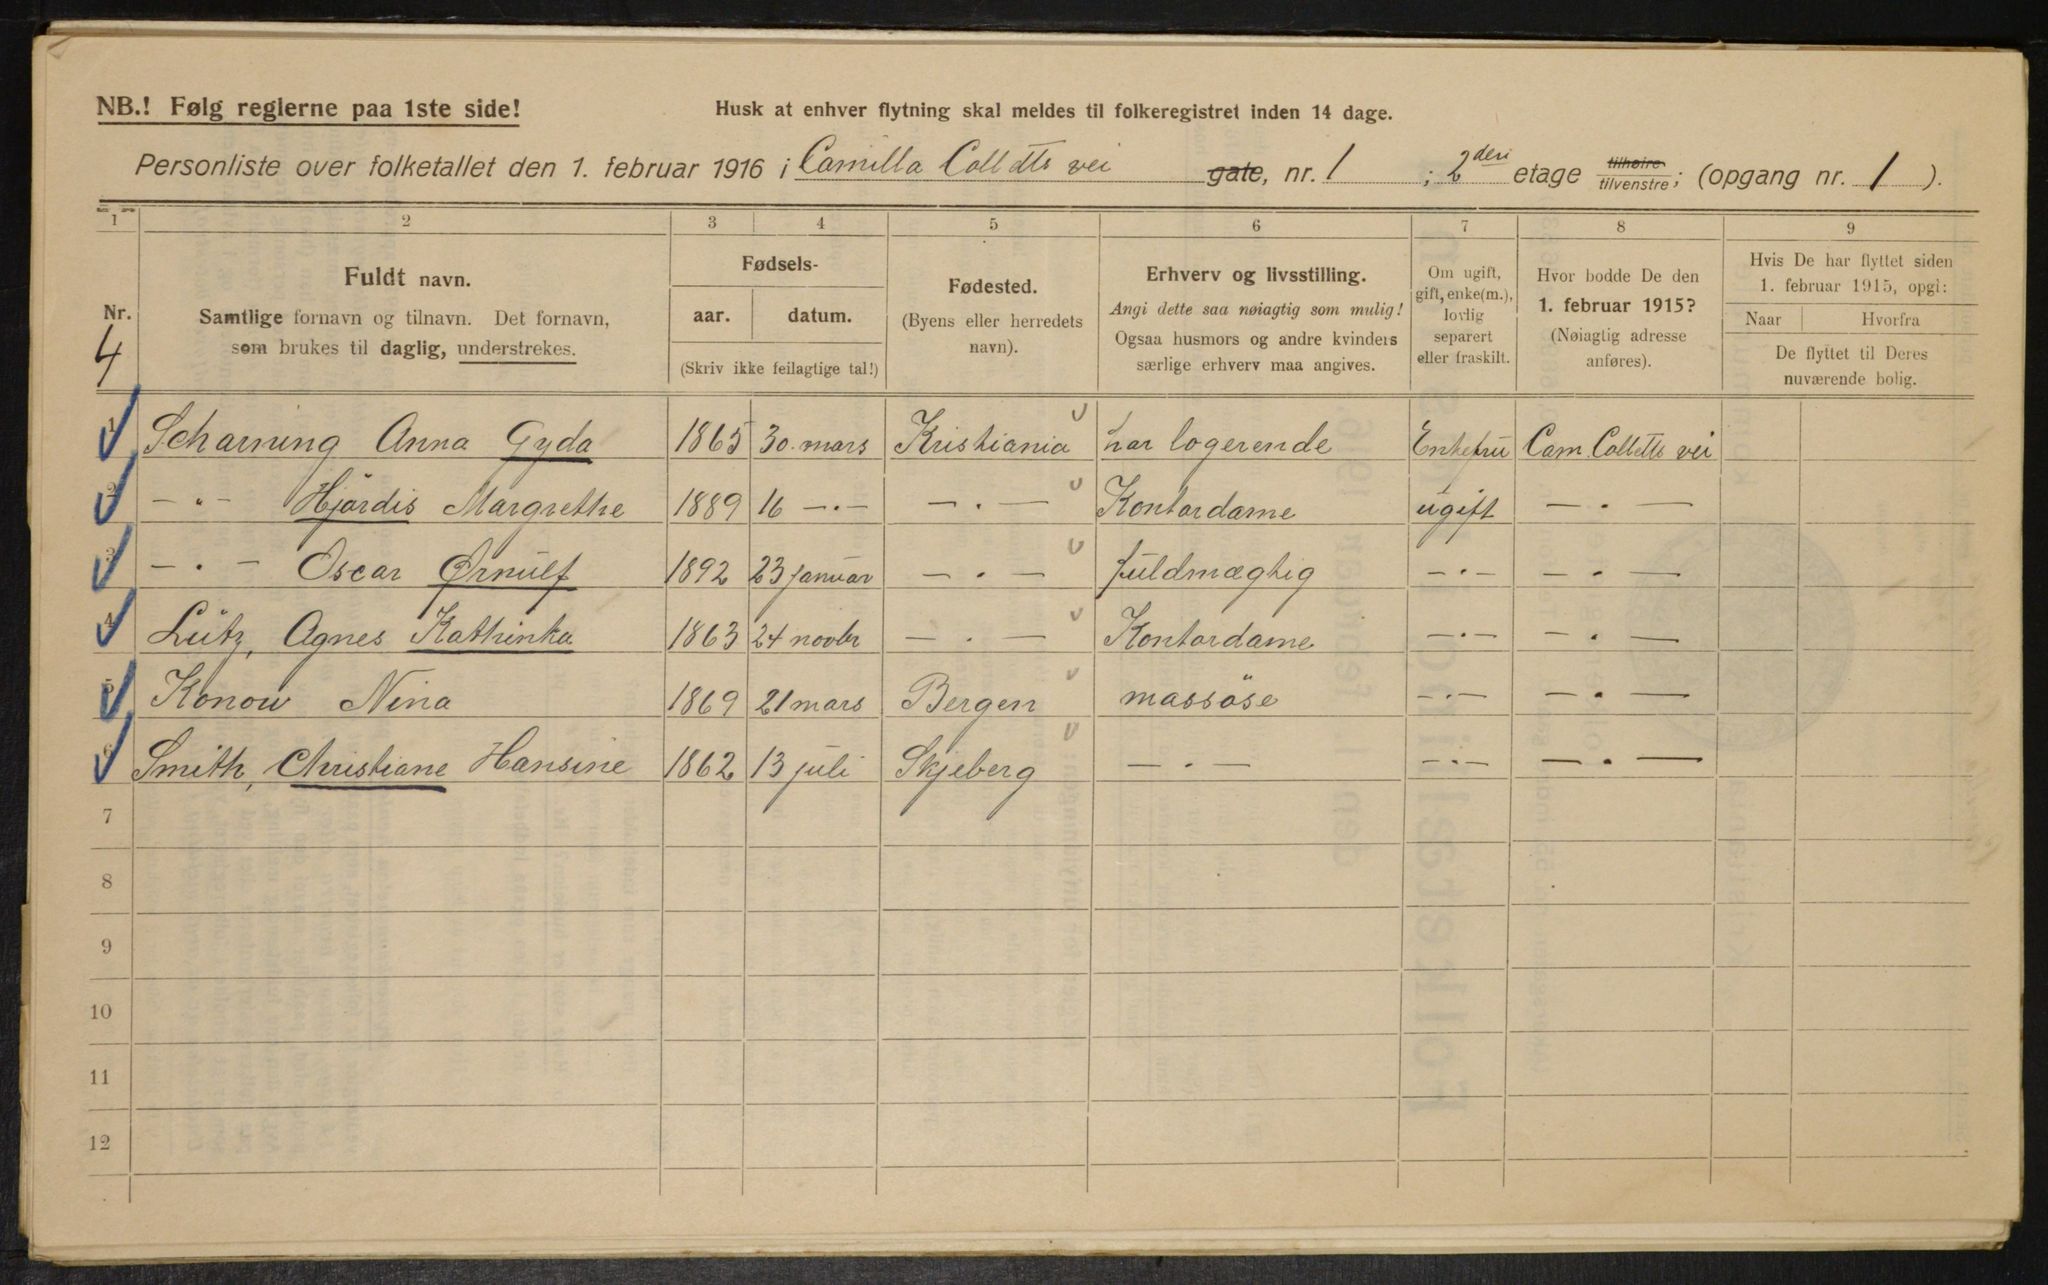 NB.! Følg reglerne paa 1ste side!
Husk at enhver flytning skal meldes til folkeregistret inden 14 dage.
Personliste over folketallet den 1. februar 1916 i Camilla Colletts vei gate, nr. 1 ; 2den etage tilhøire tilvenstre; (opgang nr. 1 ).
1 2 3 4 5 6 7 8 9
Nr.
4
Fuldt navn.
Samtlige fornavn og tilnavn. Det fornavn,
som brukes til daglig, understrekes.
Fødsels-
aar. datum.
(Skriv ikke feilagtige tal!)
Fødested.
(Byens eller herredets
navn).
Erhverv og livsstilling.
Angi dette saa nøiagtig som mulig!
Ogsaa husmors og andre kvinders
særlige erhverv maa angives.
Om ugift,
gift, enke(m.),
lovlig
separert
eller fraskilt.
Hvor bodde De den
1. februar 1915?
(Nøiagtig adresse
anføres).
Hvis De har flyttet siden
1. februar 1915, opgi:
Naar Hvorfra
De flyttet til Deres
nuværende bolig.
1 Scharning Anna Gyda 1865 30. mars Kristiania har logerende Enkefru Cam. Colletts vei
2 — " — Hjördis Margrethe 1889 16 — . — — . — Kontordame ugift — . —
3 — . — Oscar Ørnulf 1892 23 januar — . — fuldmægtig — . — — . —
4 Lütz, Agnes Kathinka 1863 24 novbr — . — Kontordame — . — — . —
5 Konow Nina 1869 21 mars Bergen massöse — . — — . —
6 Smith, Christiane Hansine 1862 13 juli Skjeberg — . — — . — — . —
7
8
9
10
11
12